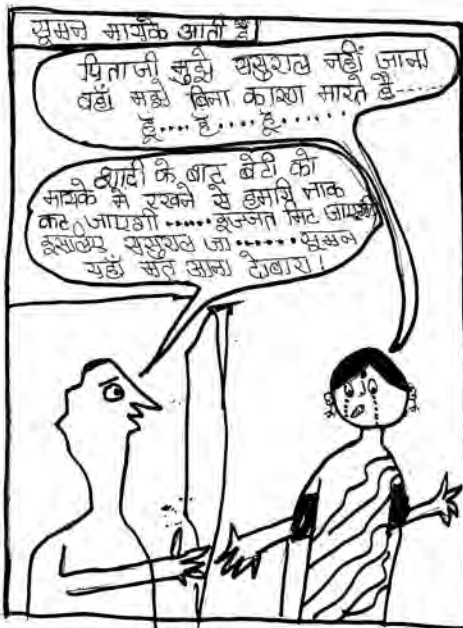 सूमन मायके आती है
पिताजी मुझे ससुराल नहीं जाना
वहाँ मुझे बिना कारण मारते है----
हूँ.... हूँ.... हूँ......
शादी के बाद बेटी को
मायके मे रखने से हमारी नाक
कट जाएगी ..... इज्जत मिट जाएगी
इसलिए ससुराल जा...... सूमन
यहाँ मत आना दोबारा!